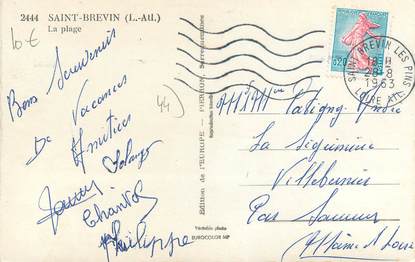 2444 SAINT-BREVIN (L.-Atl.)
La plage
10 €
Bons Souvenirs
De Vacances
Amitiés
Solange
Chantal
Philippe
44
Edition de l'EUROPE - PIERRON, Sarreguemines
Véritable photo
EUROCOLOR MP
0,20
SAINT BREVIN LES PINS
18 H
28-8
1963
LOIRE ATL.
André
La
Villebernier
Par Saumur
Maine & Loire